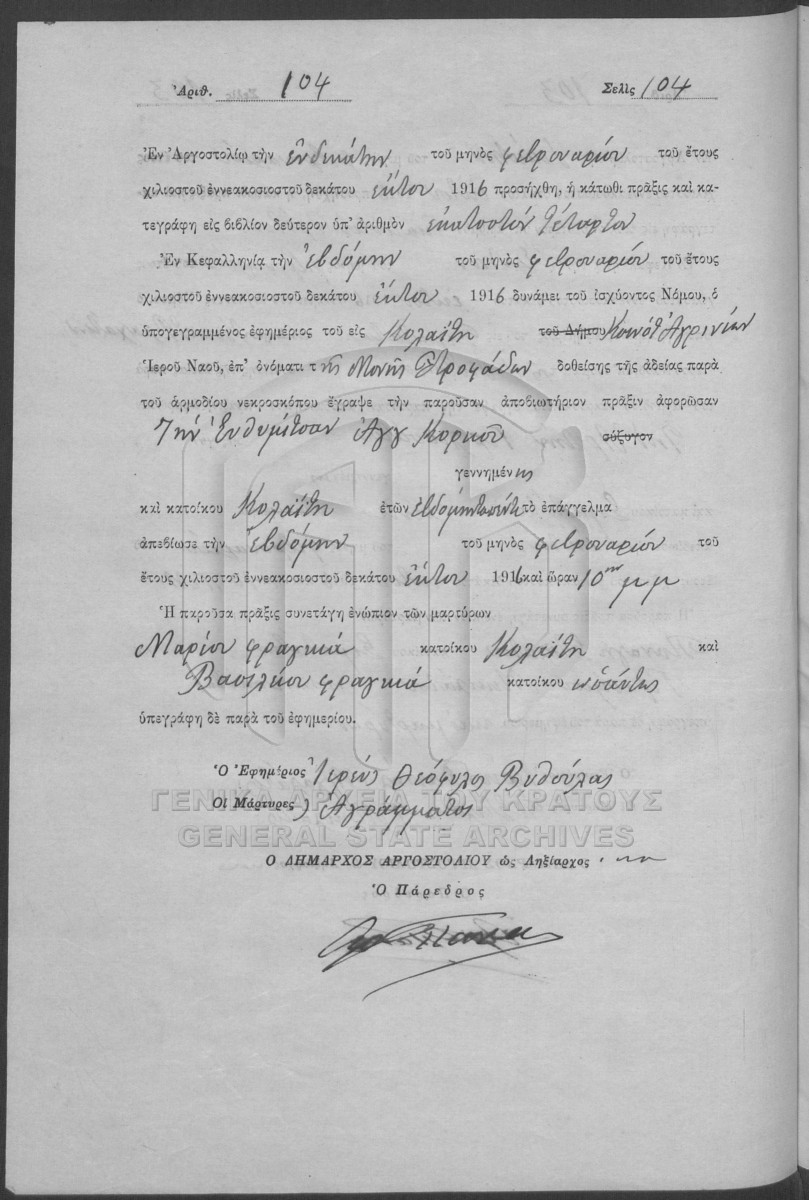 Ἀριθ. 104 Σελὶς 104
Ἐν Ἀργοστολίῳ τὴν ἑνδεκάτην τοῦ μηνὸς φεβρουαρίου τοῦ ἔτους
χιλιοστοῦ ἐννεακοσιοστοῦ δεκάτου ἕκτου 1916 προσήχθη, ἡ κάτωθι πρᾶξις καὶ κα-
τεγράφη εἰς βιβλίον δεύτερον ὑπ' ἀριθμὸν εκατοστόν τέταρτον
Ἐν Κεφαλληνίᾳ τὴν ἑβδόμην τοῦ μηνὸς φεβρουαρίου τοῦ ἔτους
χιλιοστοῦ ἐννεακοσιοστοῦ δεκάτου ἕκτου 1916 δυνάμει τοῦ ἰσχύοντος Νόμου, ὁ
ὑπογεγραμμένος ἐφημέριος τοῦ εἰς Κολαΐτη τοῦ Δήμου Κοινότ Ἀγρινίων
Ἱεροῦ Ναοῦ, ἐπ' ὀνόματι τῆς Μονῆς Στροφάδων δοθείσης τῆς ἀδείας παρὰ
τοῦ ἁρμοδίου νεκροσκόπου ἔγραψε τὴν παροῦσαν ἀποβιωτήριον πρᾶξιν ἀφορῶσαν
Την Ευθυμίτσαν Ἀγγ σύζυγον
γεννημένης
καὶ κατοίκου Κολαΐτη ἐτῶν ἑβδομήκοντα πέντε τὸ ἐπάγγελμα
ἀπεβίωσε τὴν ἑβδόμην τοῦ μηνὸς φεβρουαρίου τοῦ
ἔτους χιλιοστοῦ ἐννεακοσιοστοῦ δεκάτου ἕκτου 1916 καὶ ὥραν 10ην μ μ
Ἡ παροῦσα πρᾶξις συνετάγη ἐνώπιον τῶν μαρτύρων
Μαρίου φραγκιά κατοίκου Κολαΐτη καὶ
Βασιλείου φραγκιά κατοίκου ὡσαύτως
ὑπεγράφη δὲ παρὰ τοῦ ἐφημερίου.
Ὁ Ἐφημέριος Ἱερεύς Θεόφυλος Βυθούλας
Οἱ Μάρτυρες) Ἀγράμματος
ΓΕΝΙΚΑ ΑΡΧΕΙΑ ΤΟΥ ΚΡΑΤΟΥΣ
GENERAL STATE ARCHIVES
Ο ΔΗΜΑΡΧΟΣ ΑΡΓΟΣΤΟΛΙΟΥ ὡς Ληξίαρχος
Ὁ Πάρεδρος